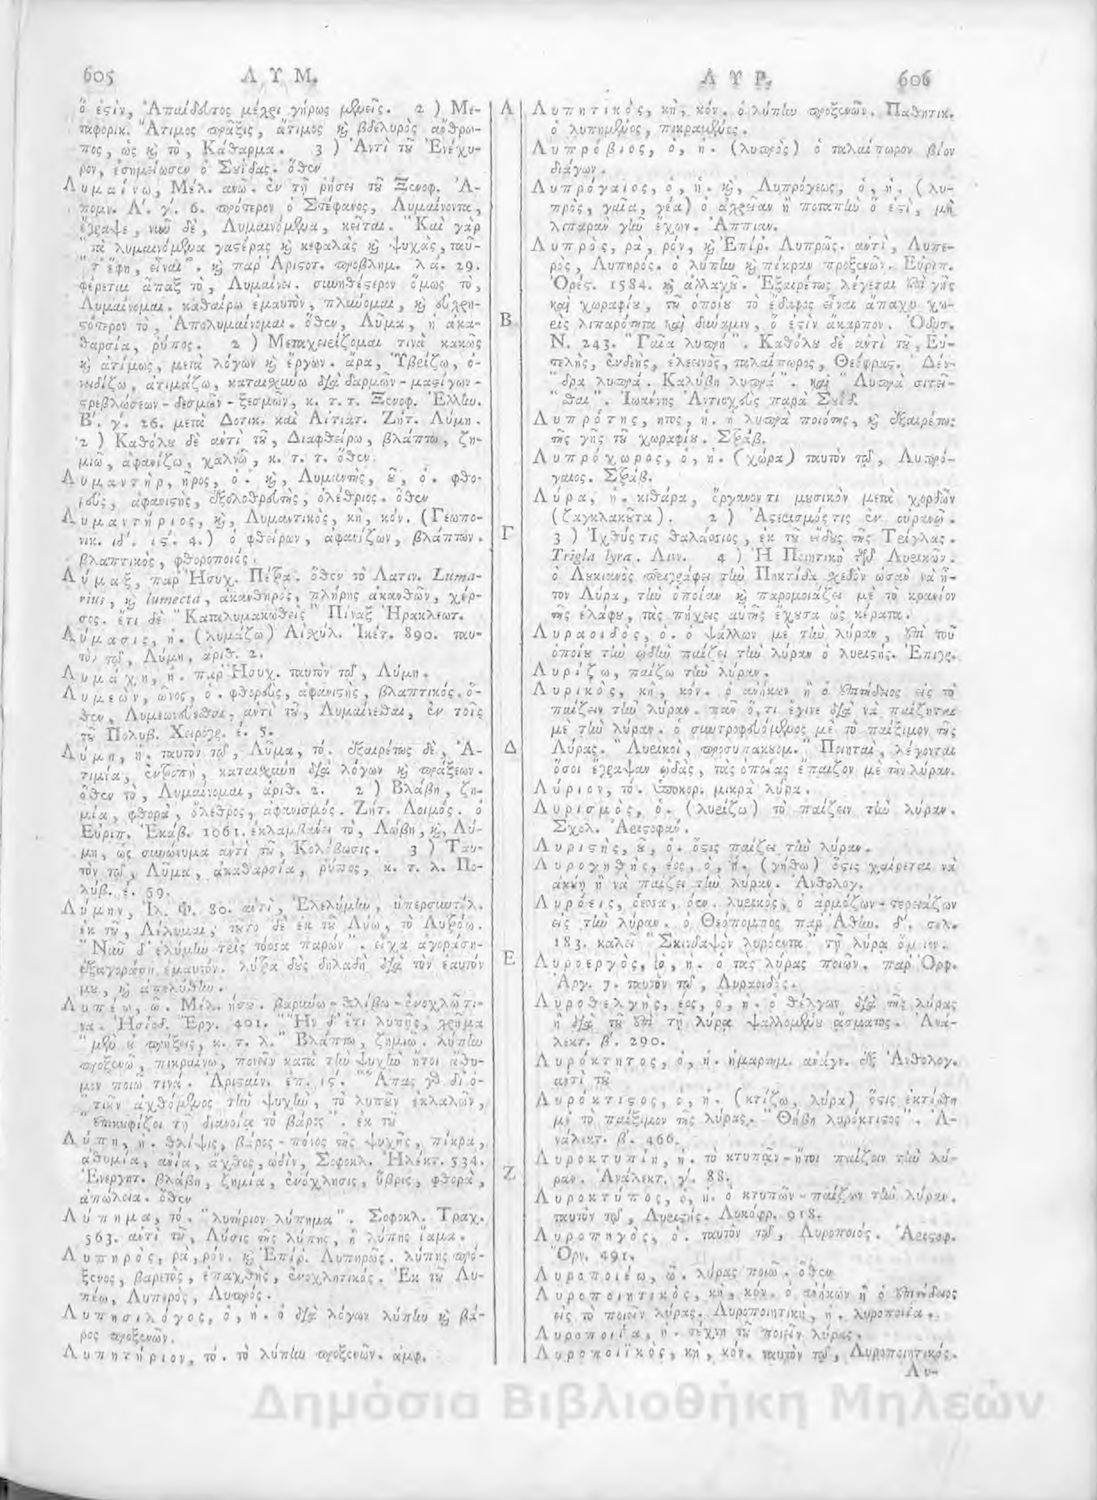 605 ΛΥΜ.
ὅ ἐςὶν, Ἀπαίδευτος μέχρι γήρως μένεις. 2) Με-
ταφορικ. Ἄτιμος πράξις, ἄτιμος καὶ βδελυρὸς ἄνθρω-
πος, ὡς καὶ τὸ, Κάθαρμα. 3) Ἀντὶ τοῦ Ἐνέχυ-
ρον, ἐσημείωσεν ὁ Σουΐδας. ὅθεν
Λυμαίνω, Μέλ. ανῶ. ἐν τῇ ῥήσει τοῦ Ξενοφ. Ἀ-
πομν. Α΄. γ΄. 6. πρότερον ὁ Στέφανος, Λυμαίνοντα,
ἔγραψε, νῦν δὲ, Λυμαινόμενα, κεῖται. "Καὶ γὰρ
"τὰ λυμαινόμενα γαςέρας καὶ κεφαλὰς καὶ ψυχὰς, ταῦ-
"τ' ἔφη, εἶναι". καὶ παρ' Ἀριςοτ. προβλημ. λα. 29.
φέρεται ἅπαξ τὸ, Λυμαίνει. συνηθέςερον ὅμως τὸ,
Λυμαίνομαι. καθαίρω ἐμαυτὸν, πλύνομαι, καὶ συχ-
νότερον τὸ, Ἀπολυμαίνομαι. ὅθεν, Λῦμα, ἡ ἀκα-
θαρσία, ῥύπος. 2) Μεταχειρίζομαι τινὰ κακῶς
καὶ ἀτίμως, μετὰ λόγων καὶ ἔργων. ἄρα, Ὑβρίζω, ὀ-
νειδίζω, ἀτιμάζω, καταισχύνω διὰ δαρμῶν - μαςίγων -
ςρεβλώσεων - δεσμῶν - ξεσμῶν, κ. τ. τ. Ξενοφ. Ἑλλην.
Β΄. γ΄. 26. μετὰ Δοτικ. καὶ Αἰτιατ. Ζήτ. Λύμη.
2) Καθόλου δὲ ἀντὶ τοῦ, Διαφθείρω, βλάπτω, ζη-
μιῶ, ἀφανίζω, χαλνῶ, κ. τ. τ. ὅθεν
Λυμαντὴρ, ῆρος, ὁ. καὶ, Λυμαντὴς, οῦ, ὁ. φθο-
ρεὺς, ἀφανιςὴς, ἐξολοθρευτὴς, ὀλέθριος. ὅθεν
Λυμαντήριος, καὶ, Λυμαντικὸς, κὴ, κόν. (Γεωπο-
νικ. ιδ΄. ις΄. 4.) ὁ φθείρων, ἀφανίζων, βλάπτων.
βλαπτικὸς, φθοροποιός.
Λύμαξ, παρ' Ἡσυχ. Πέτρα. ὅθεν τὸ Λατιν. Luma-
rius, καὶ lumecta, ἀκανθηρὸς, πλήρης ἀκανθῶν, χέρ-
σος. ἔτι δὲ "Καταλυμακωθεὶς" Πίναξ Ἡρακλεωτ.
Λύμασις, ἡ. (λυμάζω) Αἰσχύλ. Ἱκέτ. 890. ταυ-
τὸν τῷ, Λύμη, ἀριθ. 2.
Λυμάχη, ἡ. παρ' Ἡσυχ. ταυτὸν τῷ, Λύμη.
Λυμεὼν, ῶνος, ὁ. φθορεὺς, ἀφανιςὴς, βλαπτικός. ὅ-
θεν, Λυμεωνεύεσθαι, ἀντὶ τοῦ, Λυμαίνεσθαι, ἐν τοῖς
τοῦ Πολυβ. Χειρόγρ. έ. 5.
Λύμη, ἡ. ταυτὸν τῷ, Λῦμα, τό. ἐξαιρέτως δὲ, Ἀ-
τιμία, ἐντροπὴ, καταισχύνη διὰ λόγων καὶ πράξεων.
ὅθεν τὸ, Λυμαίνομαι, ἀριθ. 2. 2) Βλάβη, ζη-
μία, φθορὰ, ὄλεθρος, ἀφανισμός. Ζήτ. Λοιμός. ὁ
Εὐριπ. Ἑκάβ. 1061. ἐκλαμβάνει τὸ, Λώβη, καὶ, Λύ-
μη, ὡς συνώνυμα ἀντὶ τοῦ, Κολόβωσις. 3) Ταυ-
τὸν τῷ, Λῦμα, ἀκαθαρσία, ῥύπος, κ. τ. λ. Πο-
λύβ. έ. 59.
Λύμην, Ἰλ. Φ. 80. ἀντὶ, Ἐλελύμην, ὑπερσυντέλ.
ἐκ τοῦ, Λέλυμαι, τοῦτο δὲ ἐκ τοῦ Λύω, τὸ Λυτρόω.
"Νῦν δ' ἐλύμην τρὶς τόσσα παρών". εἶχα ἀγορασθῆ-
ἐξαγοράσῃ ἐμαυτόν. λύτρα δοὺς δηλαδὴ διὰ τὸν ἑαυτόν
μου, καὶ ἀπελύθην.
Λυπέω, ῶ. Μέλ. ήσω. βαρύνω - θλίβω - ἐνοχλῶ τι-
να. Ἡσίοδ. Ἔργ. 401. "Ἢν δ' ἔτι λυπῇς, χρῆμα
"μὲν οὐ πρήξεις, κ. τ. λ." Βλάπτω, ζημιῶ. λύπην
προξενῶ, πικραίνω, πονεῖν κατὰ τὴν ψυχὴν ἤτοι ἄθυ-
μον ποιῶ τινά. Ἀριςαίν. ἐπ. ις΄. "Ἅπας γὰρ δι' ὅ-
"τι ἀχθόμενος τὴν ψυχὴν, τὸ λυποῦν ἐκλαλῶν,
"ἐπικουφίζει τῇ διανοίᾳ τὸ βάρος". ἐκ τοῦ
Λύπη, ἡ. θλίψις, βάρος - πόνος τῆς ψυχῆς, πίκρα,
ἀθυμία, ἀνία, ἄχθος, ὠδὶν, Σοφοκλ. Ἠλέκτ. 534.
Ἐνεργητ. βλάβη, ζημία, ἐνόχλησις, ὕβρις, φθορὰ,
ἀπώλεια. ὅθεν
Λύπημα, τό. "λυτήριον λύπημα". Σοφοκλ. Τραχ.
563. ἀντὶ τοῦ, Λύσις τῆς λύπης, ἢ λύπης ἴαμα.
Λυπηρὸς, ρὰ, ρόν. καὶ Ἐπίρ. Λυπηρῶς. λύπης πρό-
ξενος, βαρετὸς, ἐπαχθὴς, ἐνοχλητικός. Ἐκ τοῦ Λυ-
πέω, Λυπερὸς, Λυπρός.
Λυπησιλόγος, ὁ, ἡ. ὁ διὰ λόγων λύπην καὶ βά-
ρος προξενῶν.
Λυπητήριον, τό. τὸ λύπην προξενῶν. ἀμφ.
Α
Β
Γ
Δ
Ε
Ζ
ΛΥΡ. 606
Λυπητικὸς, κὴ, κόν. ὁ λύπην προξενῶν. Παθητικ.
ὁ λυπημένος, πικραμένος.
Λυπρόβιος, ὁ, ἡ. (λυπρὸς) ὁ ταλαίπωρον βίον
διάγων.
Λυπρόγαιος, ὁ, ἡ. καὶ, Λυπρόγεως, ὁ, ἡ. (λυ-
πρὸς, γαῖα, γέα) ὁ ἀχρεῖαν ἢ ποταπὴν ὅ ἐςὶ, μὴ
λιπαρὰν γῆν ἔχων. Ἀππιαν.
Λυπρὸς, ρὰ, ρόν, καὶ Ἐπίρ. Λυπρῶς. ἀντὶ, Λυπε-
ρὸς, Λυπηρός. ὁ λύπην καὶ πίκραν προξενῶν. Εὐριπ.
Ὀρέσ. 1584. καὶ ἀλλαχοῦ. Ἐξαιρέτως λέγεται ἐπὶ γῆς
καὶ χωραφίου, τοῦ ὁποίου τὸ ἔδαφος εἶναι ἄπαχυ χω-
ρὶς λιπαρότητα καὶ δύναμιν, ὅ ἐςὶν ἄκαρπον. Ὀδυσ.
Ν. 243. "Γαῖα λυπρὴ". Καθόλου δὲ ἀντὶ τοῦ, Εὐ-
τελὴς, ἐνδεὴς, ἐλεεινὸς, ταλαίπωρος, Θεόφρας. "Δέν-
"δρα λυπρά. Καλύβη λυπρά". καὶ "Λυπρὰ σιτεῖ-
"σθαι". Ἰωάννης Ἀντιοχεὺς παρὰ Σουΐδ.
Λυπρότης, ητος, ἡ. ἡ λυπρὰ ποιότης, καὶ ἐξαιρέτως
τῆς γῆς τοῦ χωραφίου. Στράβ.
Λυπρόχωρος, ὁ, ἡ. (χώρα) ταυτὸν τῷ, Λυπρό-
γαιος. Στράβ.
Λύρα, ἡ. κιθάρα, ὄργανόν τι μουσικὸν μετὰ χορδῶν
(ζαγκλακοῦτα). 2) Ἀςερισμός τις ἐν οὐρανῷ.
3) Ἰχθύς τις θαλάσσιος, ἐκ τοῦ εἴδους τῆς Τρίγλας.
Trigla lyra. Λινν. 4) Ἡ Ποιητικὴ τῶν Λυρικῶν.
ὁ Λυκιανὸς περιγράφει τὴν Πηκτίδα σχεδὸν ὡσὰν νὰ ἦ-
τον Λύρα, τὴν ὁποίαν καὶ παρομοιάζει μὲ τὸ κρανίον
τῆς ἐλάφου, τὰς πήχεις αὐτῆς ἔχουσα ὡς κέρατα.
Λυραοιδὸς, ὁ. ὁ ψάλλων μὲ τὴν λύραν, ἐπὶ τοῦ
ὁποίου τὴν ᾠδὴν παίζει τὴν λύραν ὁ λυριςής. Ἐπιγρ.
Λυρίζω, παίζω τὴν λύραν.
Λυρικὸς, κὴ, κόν. ὁ ἀνήκων ἢ ὁ ἐπιτήδειος εἰς τὸ
παίζειν τὴν λύραν. πᾶν ὅ,τι ἔγινε διὰ νὰ παίζηται
μὲ τὴν λύραν. ὁ συντροφευόμενος μὲ τὸ παίξιμον τῆς
Λύρας. "Λυρικοὶ, προσυπακουομ." Ποιηταὶ, λέγονται
ὅσοι ἔγραψαν ᾠδὰς, τὰς ὁποίας ἔπαιζον μὲ τὴν λύραν.
Λύριον, τό. ὑποκορ. μικρὰ λύρα.
Λυρισμὸς, ὁ. (λυρίζω) τὸ παίζειν τὴν λύραν.
Σχολ. Ἀριςοφάν.
Λυριςὴς, οῦ, ὁ. ὅςις παίζει τὴν λύραν.
Λυρογηθὴς, έος, ὁ, ἡ. (γήθω) ὅςις χαίρεται νὰ
ἀκούῃ ἢ νὰ παίζει τὴν λύραν. Ἀνθολογ.
Λυρόεις, όεσσα, όεν. λυρικὸς, ὁ ἁρμόζων - ταιριάζων
εἰς τὴν λύραν. ὁ Θεόπομπος παρ' Ἀθην. δ΄. σελ.
183. καλεῖ "Σκινδαψὸν λυρόεντα" τῇ λύρᾳ ὅμοιον.
Λυροεργὸς, ὁ, ἡ. ὁ τὰς λύρας ποιῶν. παρ' Ὀρφ.
Ἀργ. 7. ταυτὸν τῷ, Λυραοιδός.
Λυροθελγὴς, έος, ὁ, ἡ. ὁ θέλγων διὰ τῆς λύρας
ἢ διὰ τοῦ ἐπὶ τῇ λύρᾳ ψαλλομένου ᾄσματος. Ἀνά-
λεκτ. β΄. 290.
Λυρόκτητος, ὁ, ἡ. ἡμαρτημ. ἀνάγν. ἐξ Ἀνθολογ.
ἀντὶ τοῦ
Λυρόκτιςος, ὁ, ἡ. (κτίζω, λύρα) ὅςις ἐκτίσθη
μὲ τὸ παίξιμον τῆς λύρας. "Θήβη λυρόκτιςος". Ἀ-
νάλεκτ. β΄. 466.
Λυροκτυπίη, ἡ. τὸ κτυπᾶν - ἤτοι παίζειν τὴν λύ-
ραν. Ἀνάλεκτ. γ΄. 88.
Λυροκτύπος, ὁ, ἡ. ὁ κτυπῶν - παίζων τὴν λύραν.
ταυτὸν τῷ, Λυριςής. Λυκόφρ. 918.
Λυροπηγὸς, ὁ. ταυτὸν τῷ, Λυροποιός. Ἀριςοφ.
Ὀρν. 491.
Λυροποιέω, ῶ. λύρας ποιῶ. ὅθεν
Λυροποιητικὸς, κὴ, κόν. ὁ ἀνήκων ἢ ὁ ἐπιτήδειος
εἰς τὸ ποιεῖν λύρας. Λυροποιητικὴ, ἡ. λυροποιΐα.
Λυροποιΐα, ἡ. τέχνη τοῦ ποιεῖν λύρας.
Λυροποιϊκὸς, κὴ, κόν. ταυτὸν τῷ, Λυροποιητικός.
Λυ-
Δημόσια Βιβλιοθήκη Μηλεών